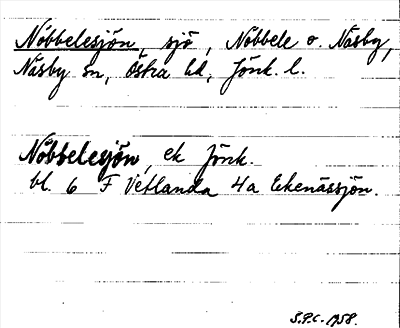 Nöbbelesjön, sjö, Nöbbele o. Näsby,
Näsby sn, Östra hd, Jönk. l.
Nöbbelesjön, ek Jönk.
bl. 6 F Vetlanda 4a Ekenässjön.
S.P.C. 1958.